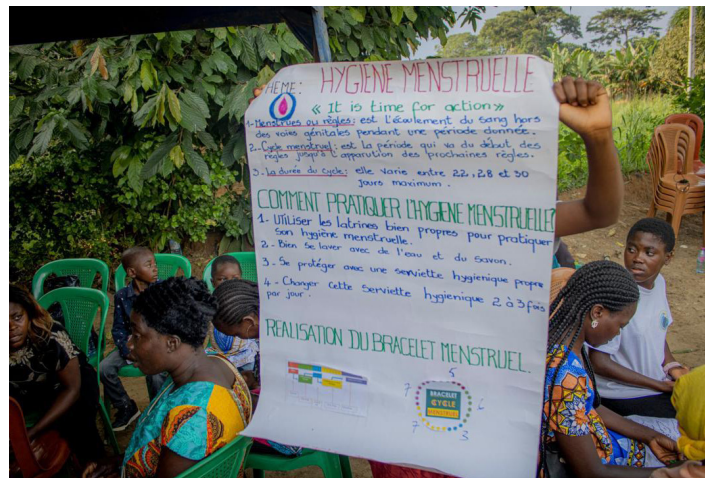 THEME: HYGIENE MENSTRUELLE
« It is time for action »
1-Menstrues ou règles: est l'écoulement du sang hors
des voies génitales pendant une période donnée.
2-Cycle menstruel: est la période qui va du début, des
règles jusqu'à l'apparution des prochaines règles.
3-La durée du cycle: elle varie entre 22, 28 et 30
jours maximum.
COMMENT PRATIQUER L'HYGIENE MENSTRUELLE?
1- UTiliser les latrines bien propres pour pratiquer
son hygiène menstruelle.
2- Bien se laver avec de l'eau et du savon.
3- Se protéger avec une serviette hygienique propre
4- Changer cette serviette hygienique 2 à 3 fois
par jour.
REALISATION DU BRACELET MENSTRUEL.
5
7
6
BRACELET
CYCLE
MENSTRUEL
7
3